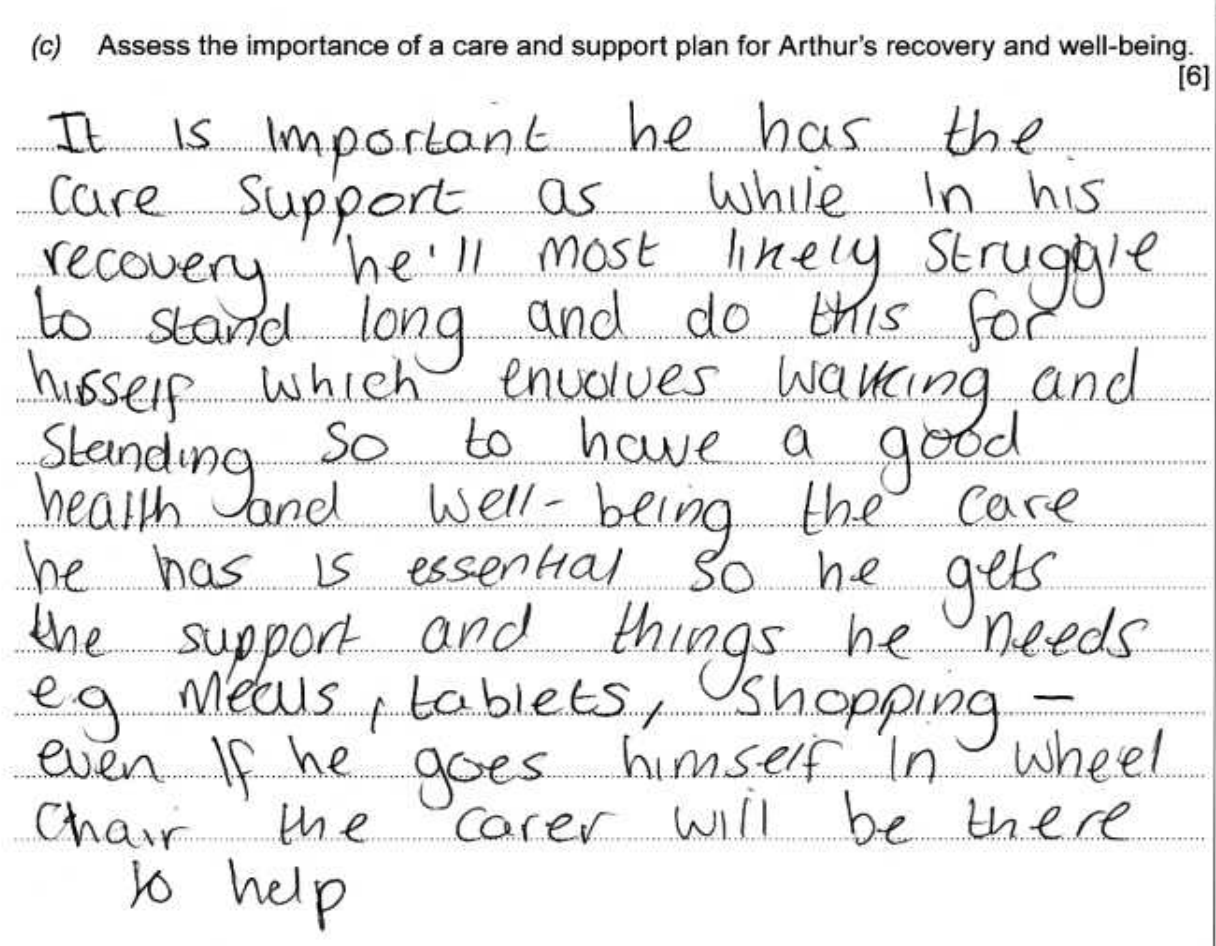 (c) Assess the importance of a care and support plan for Arthur's recovery and well-being.
[6]
It is important he has the
care support as while in his
recovery he'll most likely struggle
to stand long and do this for
hisself which envolves walking and
standing so to have a good
health and well-being the care
he has is essential so he gets
the support and things he needs
eg meals, tablets, shopping –
even if he goes himself in wheel
chair the carer will be there
to help